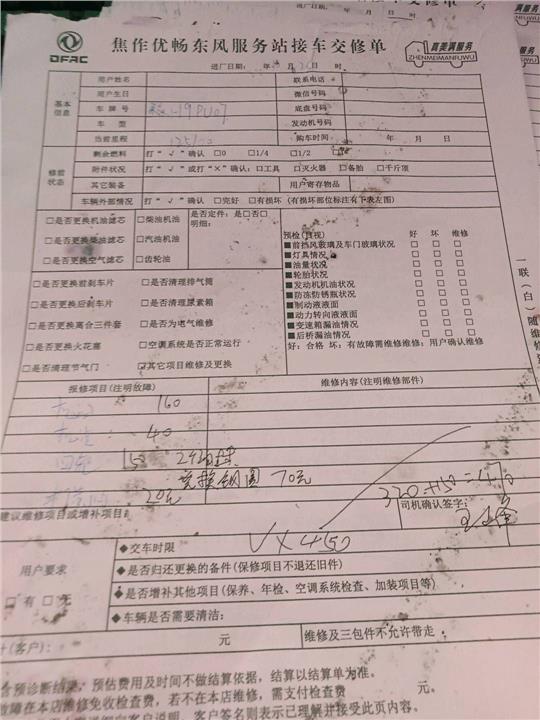 DFAC
焦作优畅东风服务站接车交修单
真美满服务
ZHENMEIMANFUWU
进厂日期: 年 月 日 时
基本信息
用户姓名 联系电话
用户生日 微信号码
车牌号 19PU07 底盘号码
车型 发动机号码
当前里程 购车时间: 年 月 日
修前状态
剩余燃料 打“√”确认 □0 □1/4 □1/2
附件状况 打“√”或打“×”确认: □工具 □灭火器 □备胎 □千斤顶
其它装备 用户寄存物品
车辆外部情况 打“√”确认 □完好 □有损坏 (有损坏部位标注有下表左图)
□是否更换机油滤芯 □柴油机油 是否定件: 是□否□
□是否更换柴油滤芯 □汽油机油 明细:
□是否更换空气滤芯 □齿轮油
□是否更换前刹车片 □是否清理排气筒
□是否更换后刹车片 □是否清理尿素箱
□是否更换离合三件套 □是否为电气维修
□是否更换火花塞 □空调系统是否正常运行
□是否清理节气门 □其它项目维修及更换
预检(目视) 好 坏 维修
■前挡风玻璃及车门玻璃状况 □ □ □
■灯具情况 □ □ □
■油量状况 □ □ □
■轮胎状况 □ □ □
■发动机机油状况 □ □ □
■防冻防锈瓶状况 □ □ □
■制动液液面 □ □ □
■动力转向液液面 □ □ □
■变速箱漏油情况 □ □ □
■后桥漏油情况 □ □ □
好: 合格 坏: 有故障需维修维修: 用户确认维修
一联(白)随维修
报修项目(注明故障) 维修内容(注明维修部件)
160
40
150
兑换钢圈 70元
20元
320+150=470
建议维修项目或增补项目:
司机确认签字:
VX450
用户要求
□有 □无
◆交车时限
◆是否归还更换的备件(保修项目不退还旧件)
◆是否增补其他项目(保养、年检、空调系统检查、加装项目等)
◆车辆是否需要清洁:
计(客户): 元 维修及三包件不允许带走
含预诊断结果; 预估费用及时间不做结算依据, 结算以结算单为准。
故障在本店维修免收检查费, 若不在本店维修, 需支付检查费 元。
客户签名则表示已理解并接受此页内容。